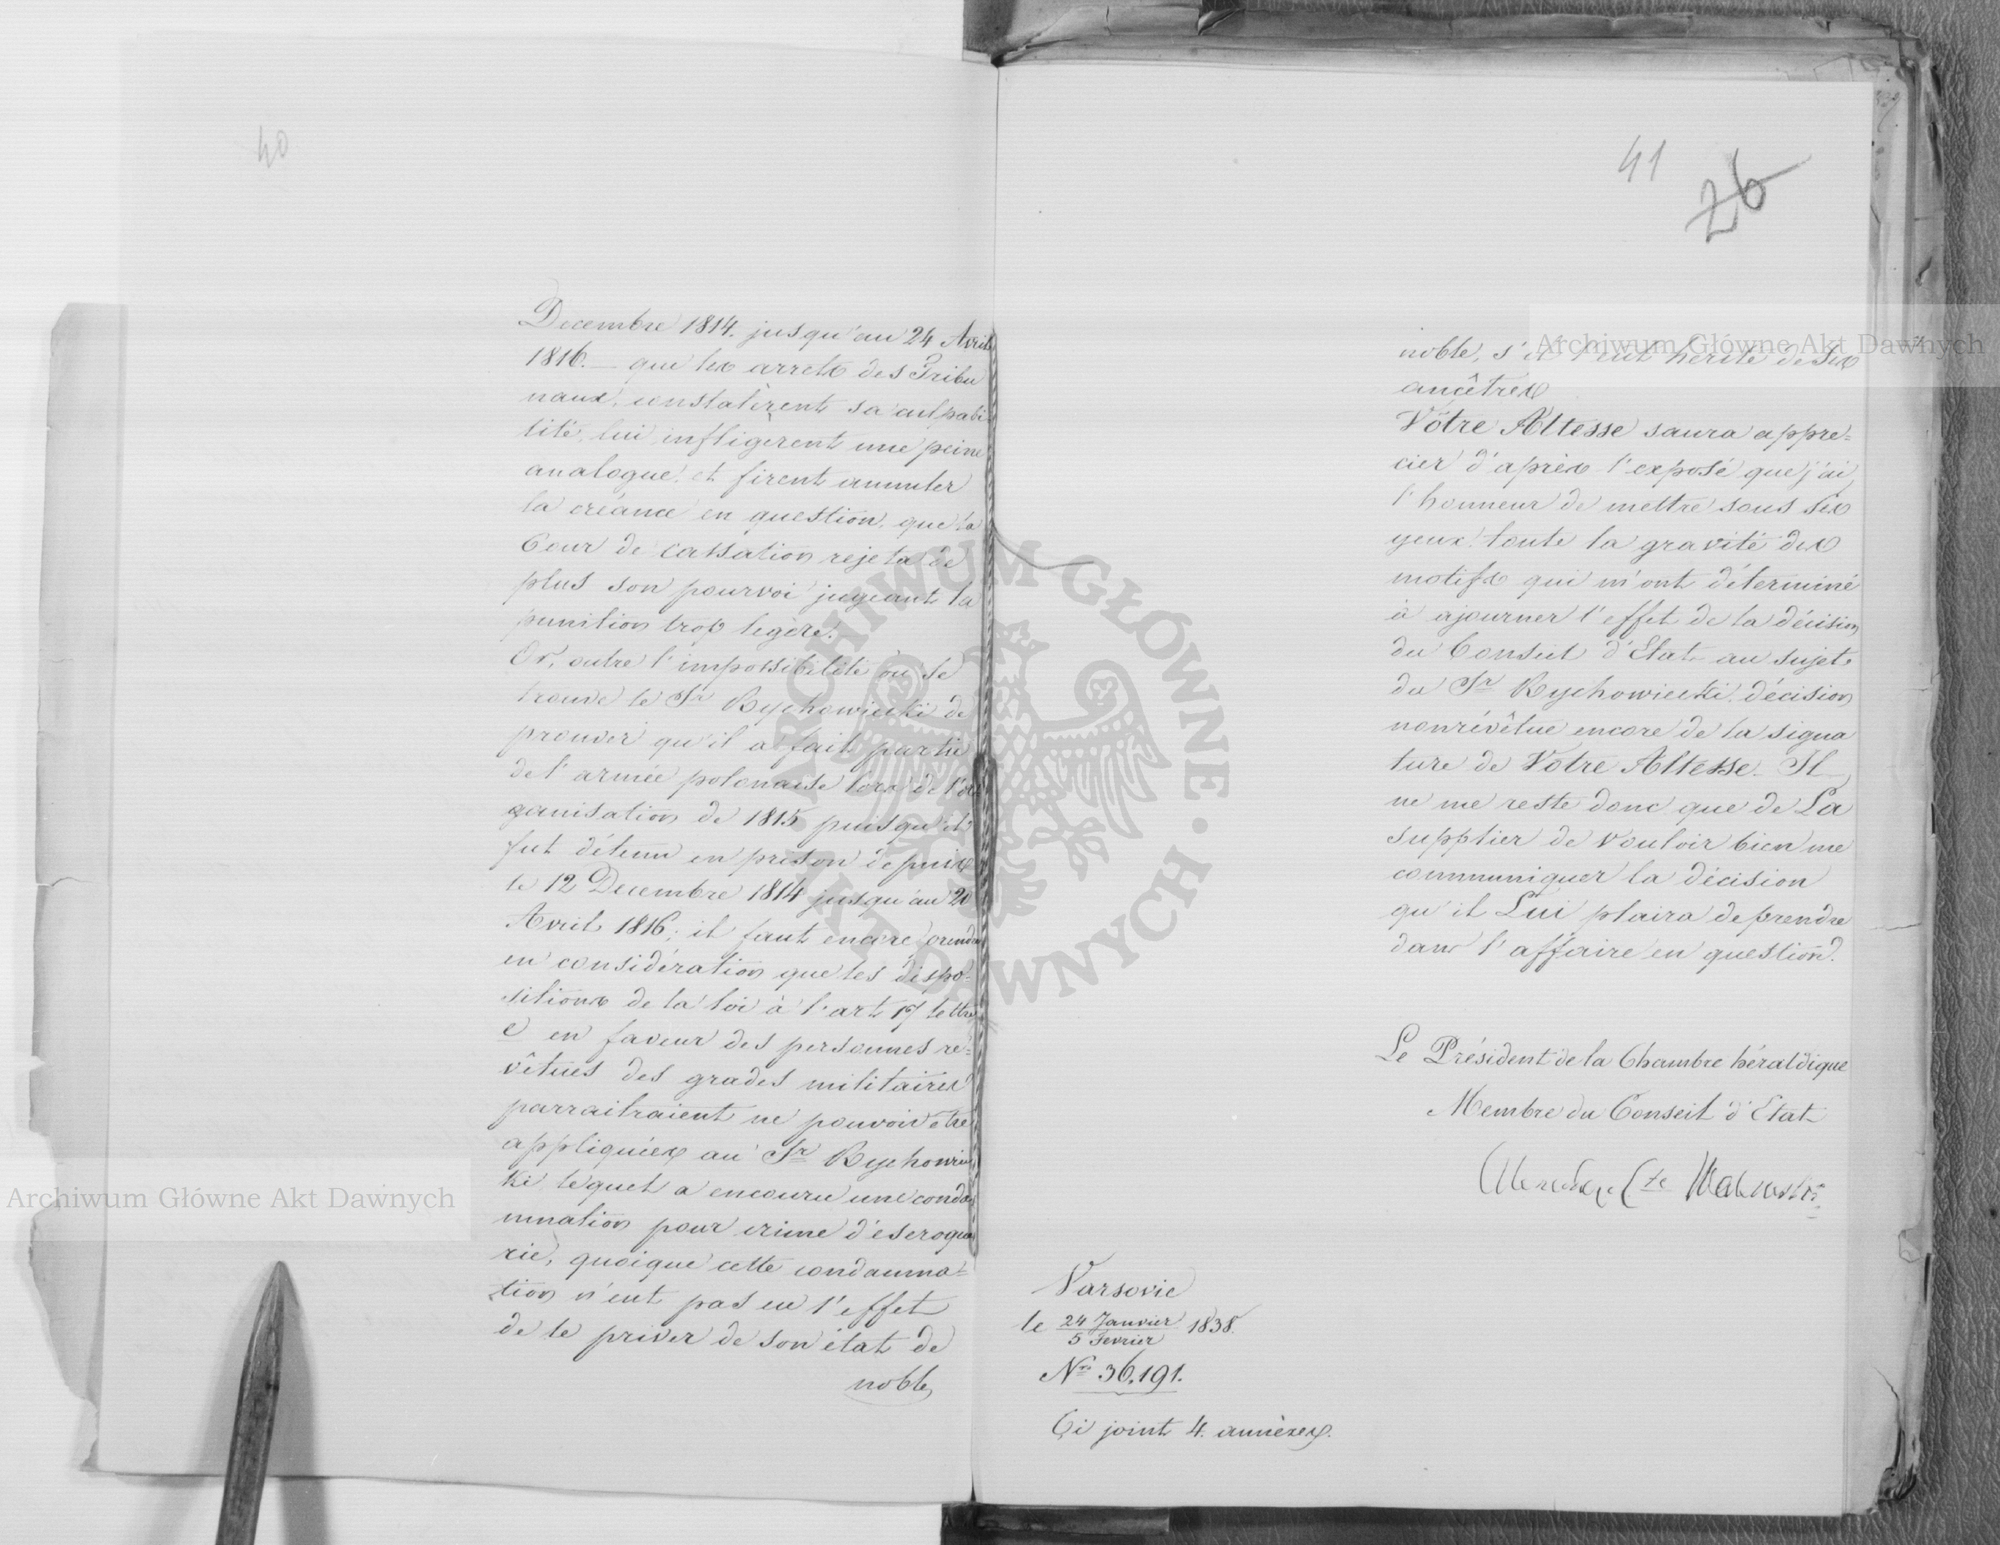 40
Decembre 1814. jusqu'au 24 Avril
1816. — que les arrets des Tribu
naux, constatèrent sa culpabi
lité, lui infligèrent une peine
analogue, et firent annuler
la créance en question, que la
Cour de cassation rejeta de
plus son pourvoi jugeant la
punition trop legère.
Or, outre l'impossibilité où se
trouve le Sr Rychowiecki de
prouver qu'il a fait partie
de l'armée polonaise lors de l'or
ganisation de 1815 puisqu'il
fut détenu en prison depuis
le 12 Decembre 1814 jusqu'au 20
Avril 1816; il faut encore prendre
en considération que les dispo-
sitions de la loi à l'art 17 lettre
e en faveur des personnes re-
vêtues des grades militaires
parraitraient ne pouvoir être
appliquées au Sr Rychowiec
ki lequel a encouru une conda
mnation pour crime d'escroque
rie, quoique cette condamna-
tion n'eut pas eu l'effet
de le priver de son état de
noble,
41
26
noble, s'il l'eut hérité de ses
ancêtres
Vôtre Altesse saura appre-
cier d'après l'exposé que j'ai
l'honneur de mettre sous ses
yeux toute la gravité des
motifs qui m'ont déterminé
à ajourner l'effet de la décision
du Conseil d'Etat au sujet
du Sr Rychowiecki, décision
nonrévêtue encore de la signa
ture de Votre Altesse. Il
ne me reste donc que de La
supplier de vouloir bien me
communiquer la décision
qu'il Lui plaira de prendre
dans l'affaire en question.
Le Président de la Chambre héraldique
Membre du Conseil d'Etat
Cte
Varsovie
le 24 Janvier / 5 Fevrier 1838.
No 36,191.
Ci joint 4. annèxes.
Archiwum Główne Akt Dawnych
Archiwum Główne Akt Dawnych
ARCHIWUM GŁÓWNE · AKT DAWNYCH ·